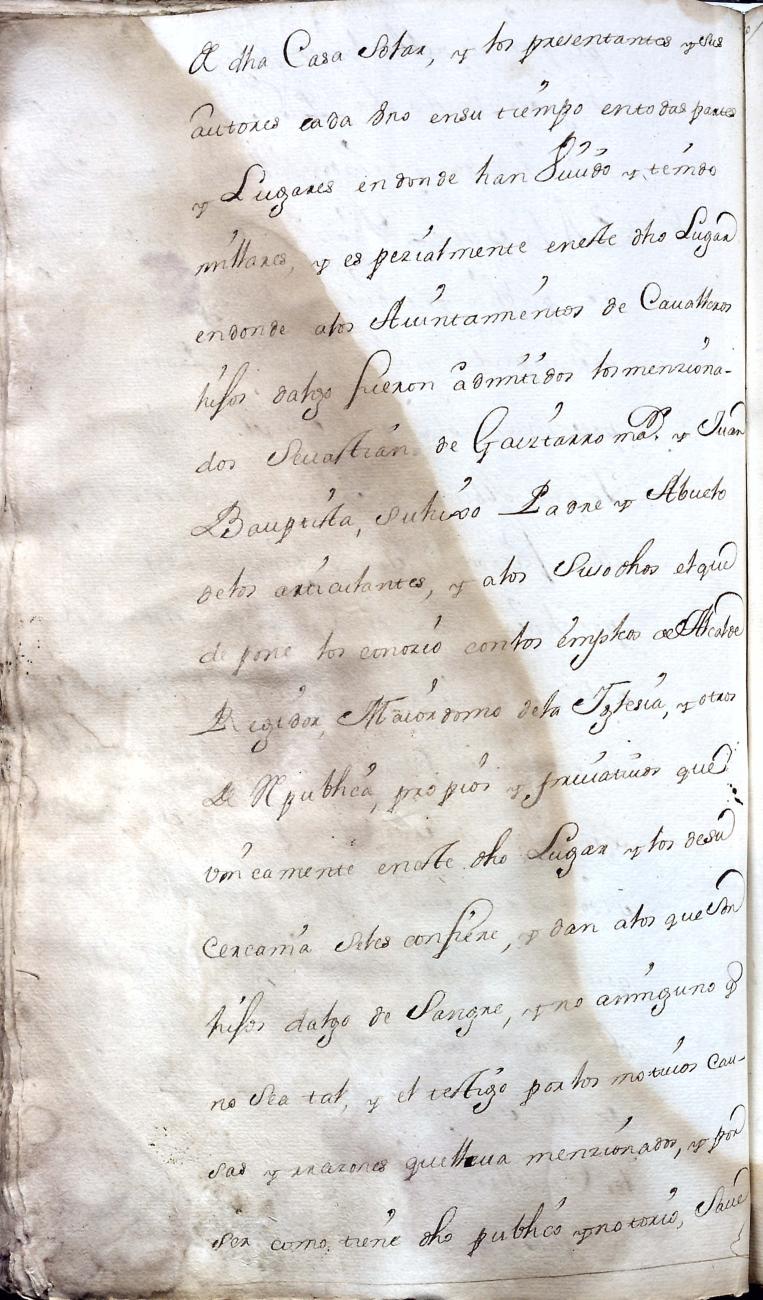 de dha Casa Solar, y los presentantes y sus
autores cada vno ensu tiempo entodas partes
y Lugares endonde han viuido y tenido
millares, y espezialmente eneste dho Lugar
endonde alos Aiuntamientos de Cavalleros
hijos dalgo fueron admitidos los menziona-
dos Sevastian de Gaiztarro maor. y Juan
Bauptista, su hixo Padre y Abuelo
delos articulantes, y alos Susodhos el que
depone los conozio con los empleos de Alcalde
Regidor, Maiordomo dela Iglesia, y otros
de Republica, propios y priuatiuos que
vnicamente eneste dho Lugar y los desu
cercania seles confiere, y dan alos que son
hijos dalgo de Sangre, y no aninguno q
no Sea tal, y el testigo por los motiuos cau-
sas y rrazones quelleua menzionados, y por
ser como tiene dho publico y notorio, Saue